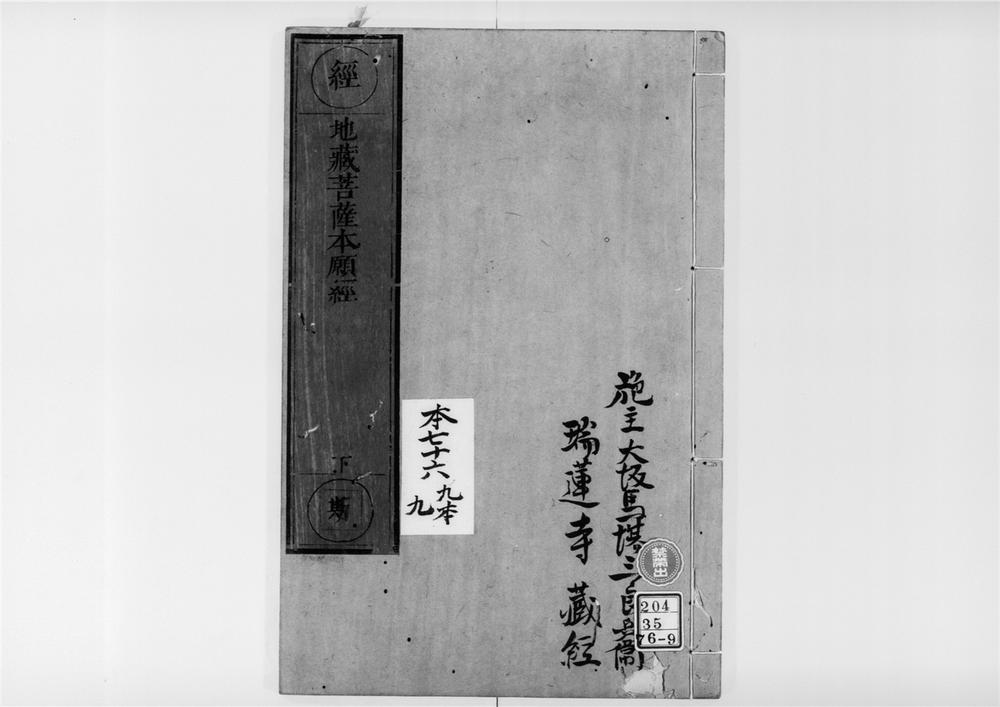 經
地藏菩薩本願經
下
斯
本七十六
九本
九
施主大坂馬塲三良兵衛
瑞蓮寺 藏經
禁帶出
204
35
76-9